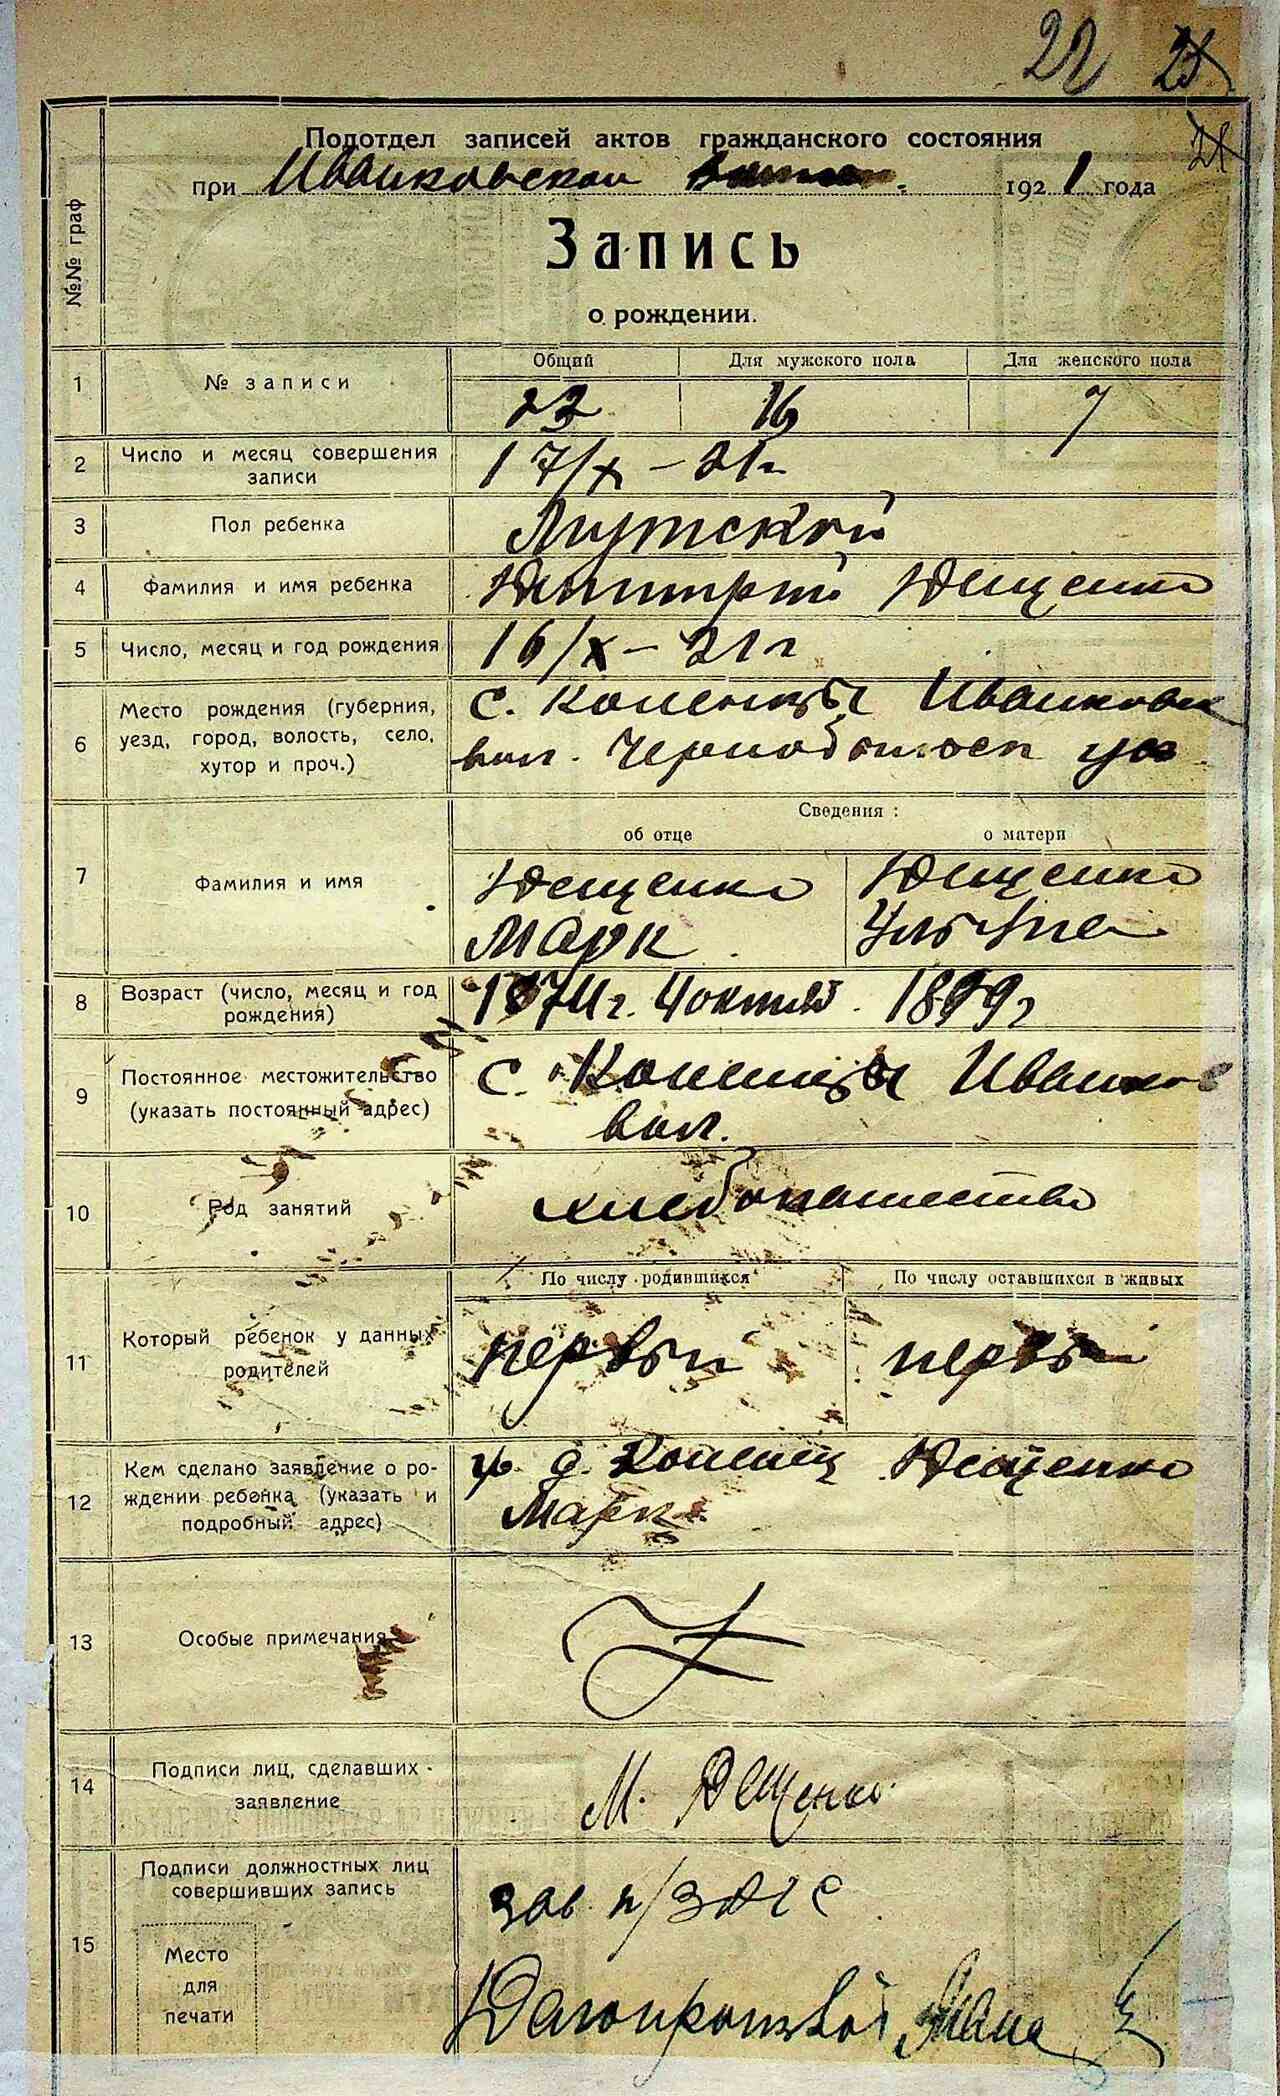 22 25
21
Подотдел записей актов гражданского состояния
при Иванковской 1921 года
№№ граф
Запись
о рождении.
1 № записи
Общий Для мужского пола Для женского пола
23 16 7
2 Число и месяц совершения записи
17/X – 21 г
3 Пол ребенка
Мужской
4 Фамилия и имя ребенка
Дмитрий Дещенко
5 Число, месяц и год рождения
16/X – 21 г
6 Место рождения (губерния,
уезд, город, волость, село,
хутор и проч.)
с. Коленцы Иванковск
вол. Чернобыльск уез
7 Фамилия и имя
Сведения:
об отце о матери
Дещенко Дещенко
Марк Ульяна
8 Возраст (число, месяц и год
рождения)
1874 г. 4 октяб 1899 г
9 Постоянное местожительство
(указать постоянный адрес)
с. Коленцы Иванков
вол.
10 Род занятий
хлебопашество
11 Который ребенок у данных
родителей
По числу родившихся По числу оставшихся в живых
первый первый
12 Кем сделано заявление о ро-
ждении ребенка (указать и
подробный адрес)
гр. д. Коленц Дещенко
Марк
13 Особые примечания
14 Подписи лиц, сделавших
заявление
М. Дещенко
15 Подписи должностных лиц
совершивших запись
зав. п/ЗАГС
Место
для
печати